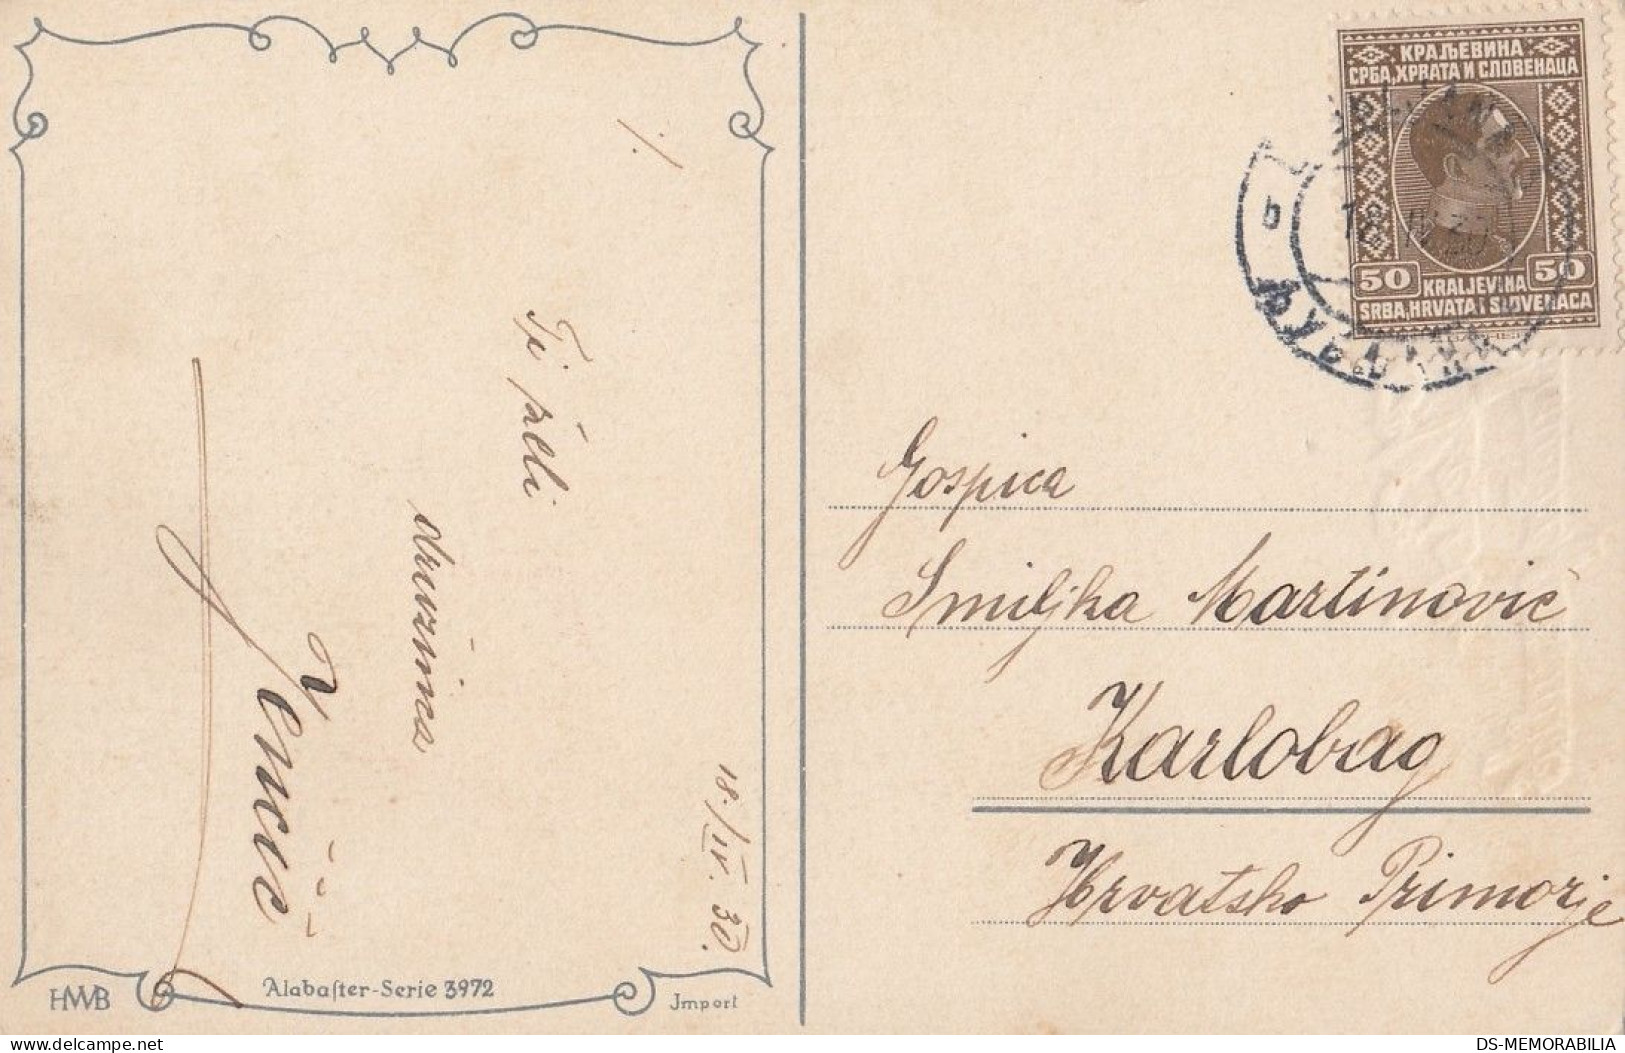 Ti želi
družina
18./IV. 30.
HWB
Alabaſter-Serie 3972
Jmport
КРАЉЕВИНА
СРБА, ХРВАТА И СЛОВЕНАЦА
50 KRALJEVINA 50
SRBA, HRVATA I SLOVENACA
b
18. IV. 30
Gospica
Smiljka Martinović
Karlobag
Hrvatsko Primorje
delcampe.net
DS-MEMORABILIA